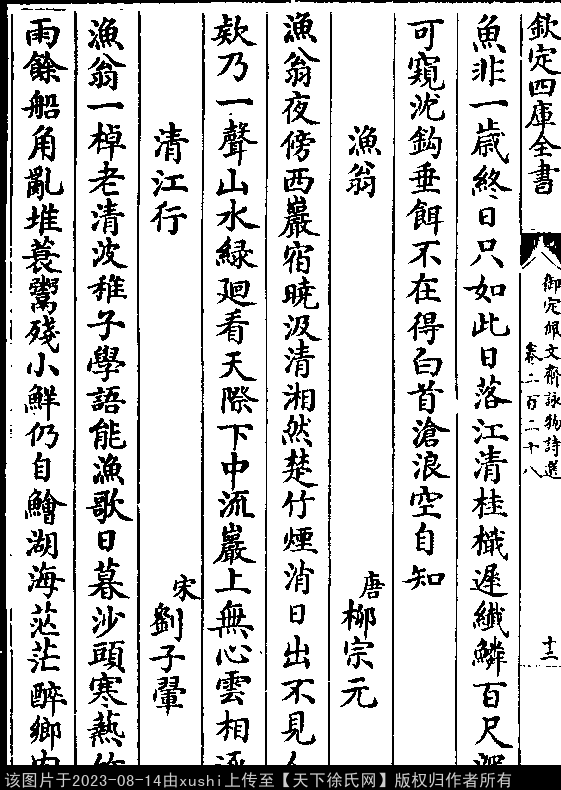 欽定四庫全書
御定佩文齋詠物詩選
卷二百二十八
十三
魚非一歲終日只如此日落江清桂檝遲纖鱗百尺深
可窺沈鈎垂餌不在得白首滄浪空自知
漁翁
唐
柳宗元
漁翁夜傍西巖宿曉汲清湘然楚竹煙消日出不見
欸乃一聲山水綠廻看天際下中流巖上無心雲相逐
清江行
宋
劉子翬
漁翁一棹老清波稚子學語能漁歌日暮沙頭寒爇竹
雨餘船角亂堆蓑鬻殘小鮮仍自鱠湖海茫茫醉鄉内
该图片于2023-08-14由xushi上传至【天下徐氏网】版权归作者所有